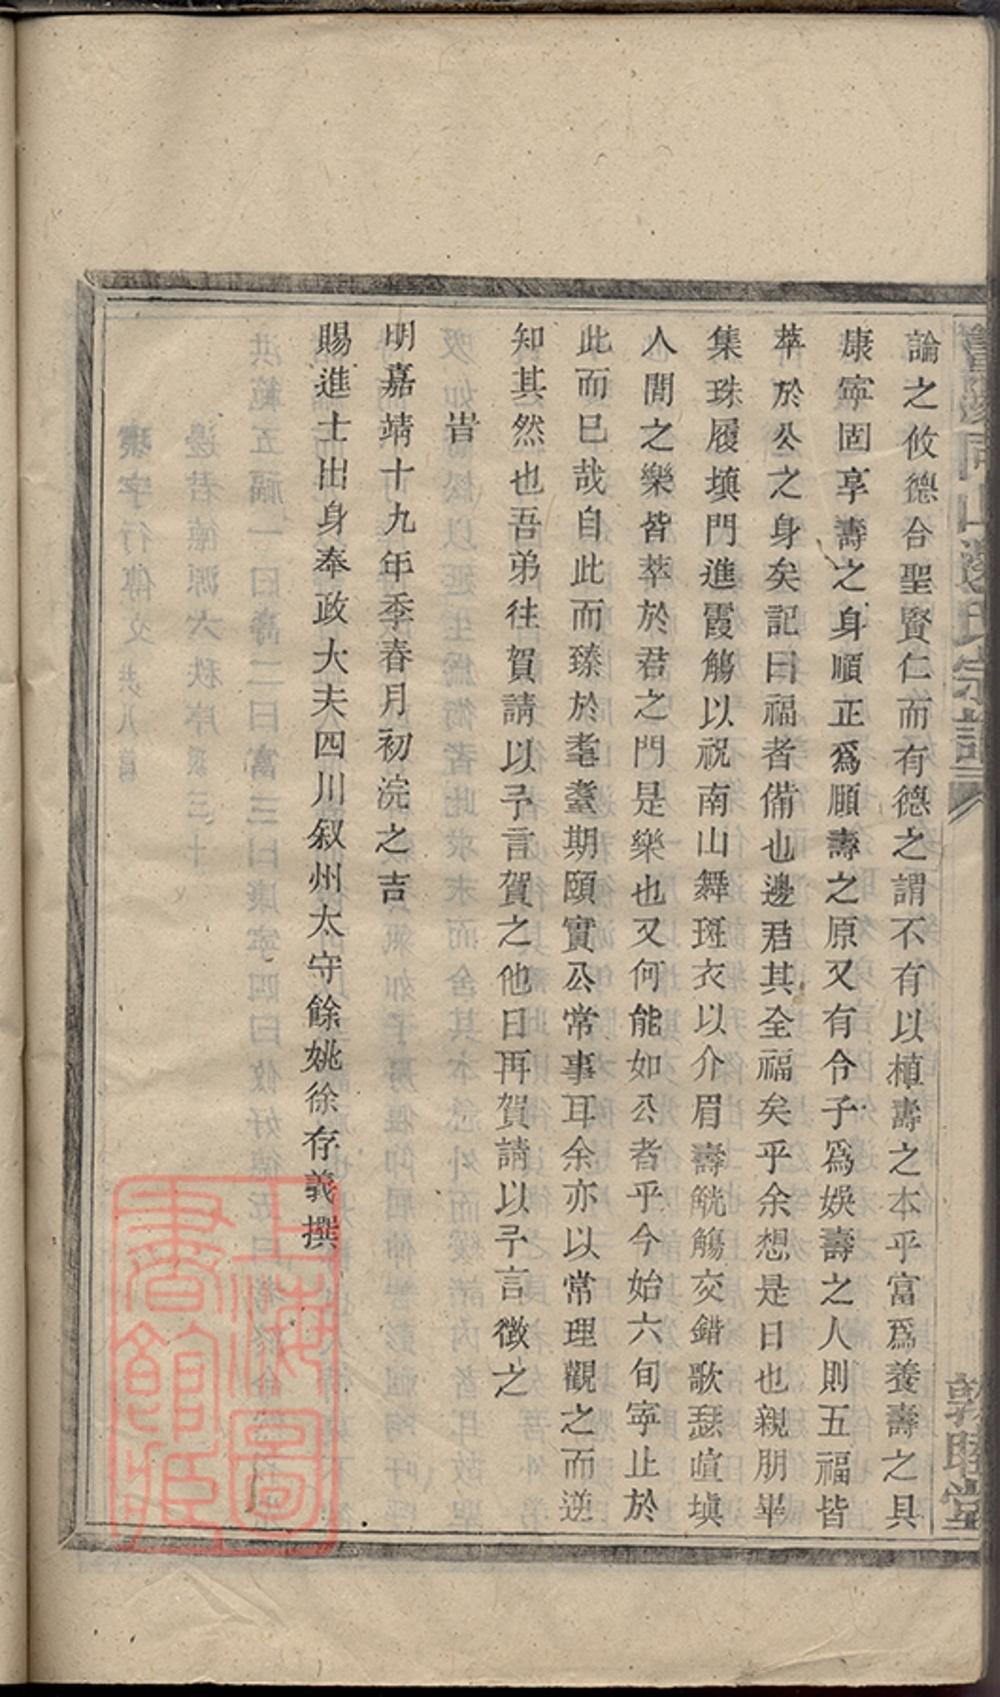 論之攸德合聖賢仁而有德之謂不有以植壽之本乎富爲養壽之具
康寧固享壽之身順正爲願壽之原又有令子爲娛壽之人則五福皆
萃於公之身矣記曰福者備也邊君其全福矣乎余想是日也親朋畢
集珠履塡門進霞觴以祝南山舞斑衣以介眉壽觥觴交錯歌瑟喧塡
人閒之樂皆萃於君之門是樂也又何能如公者乎今始六旬寧止於
此而已哉自此而臻於耄耋期頤實公常事耳余亦以常理觀之而逆
知其然也吾弟往賀請以予言賀之他日再賀請以予言徵之
旹
明嘉靖十九年季春月初浣之吉
賜進士出身奉政大夫四川叙州太守餘姚徐存義撰
山邊氏宗譜
敦睦堂
上海圖
書館藏